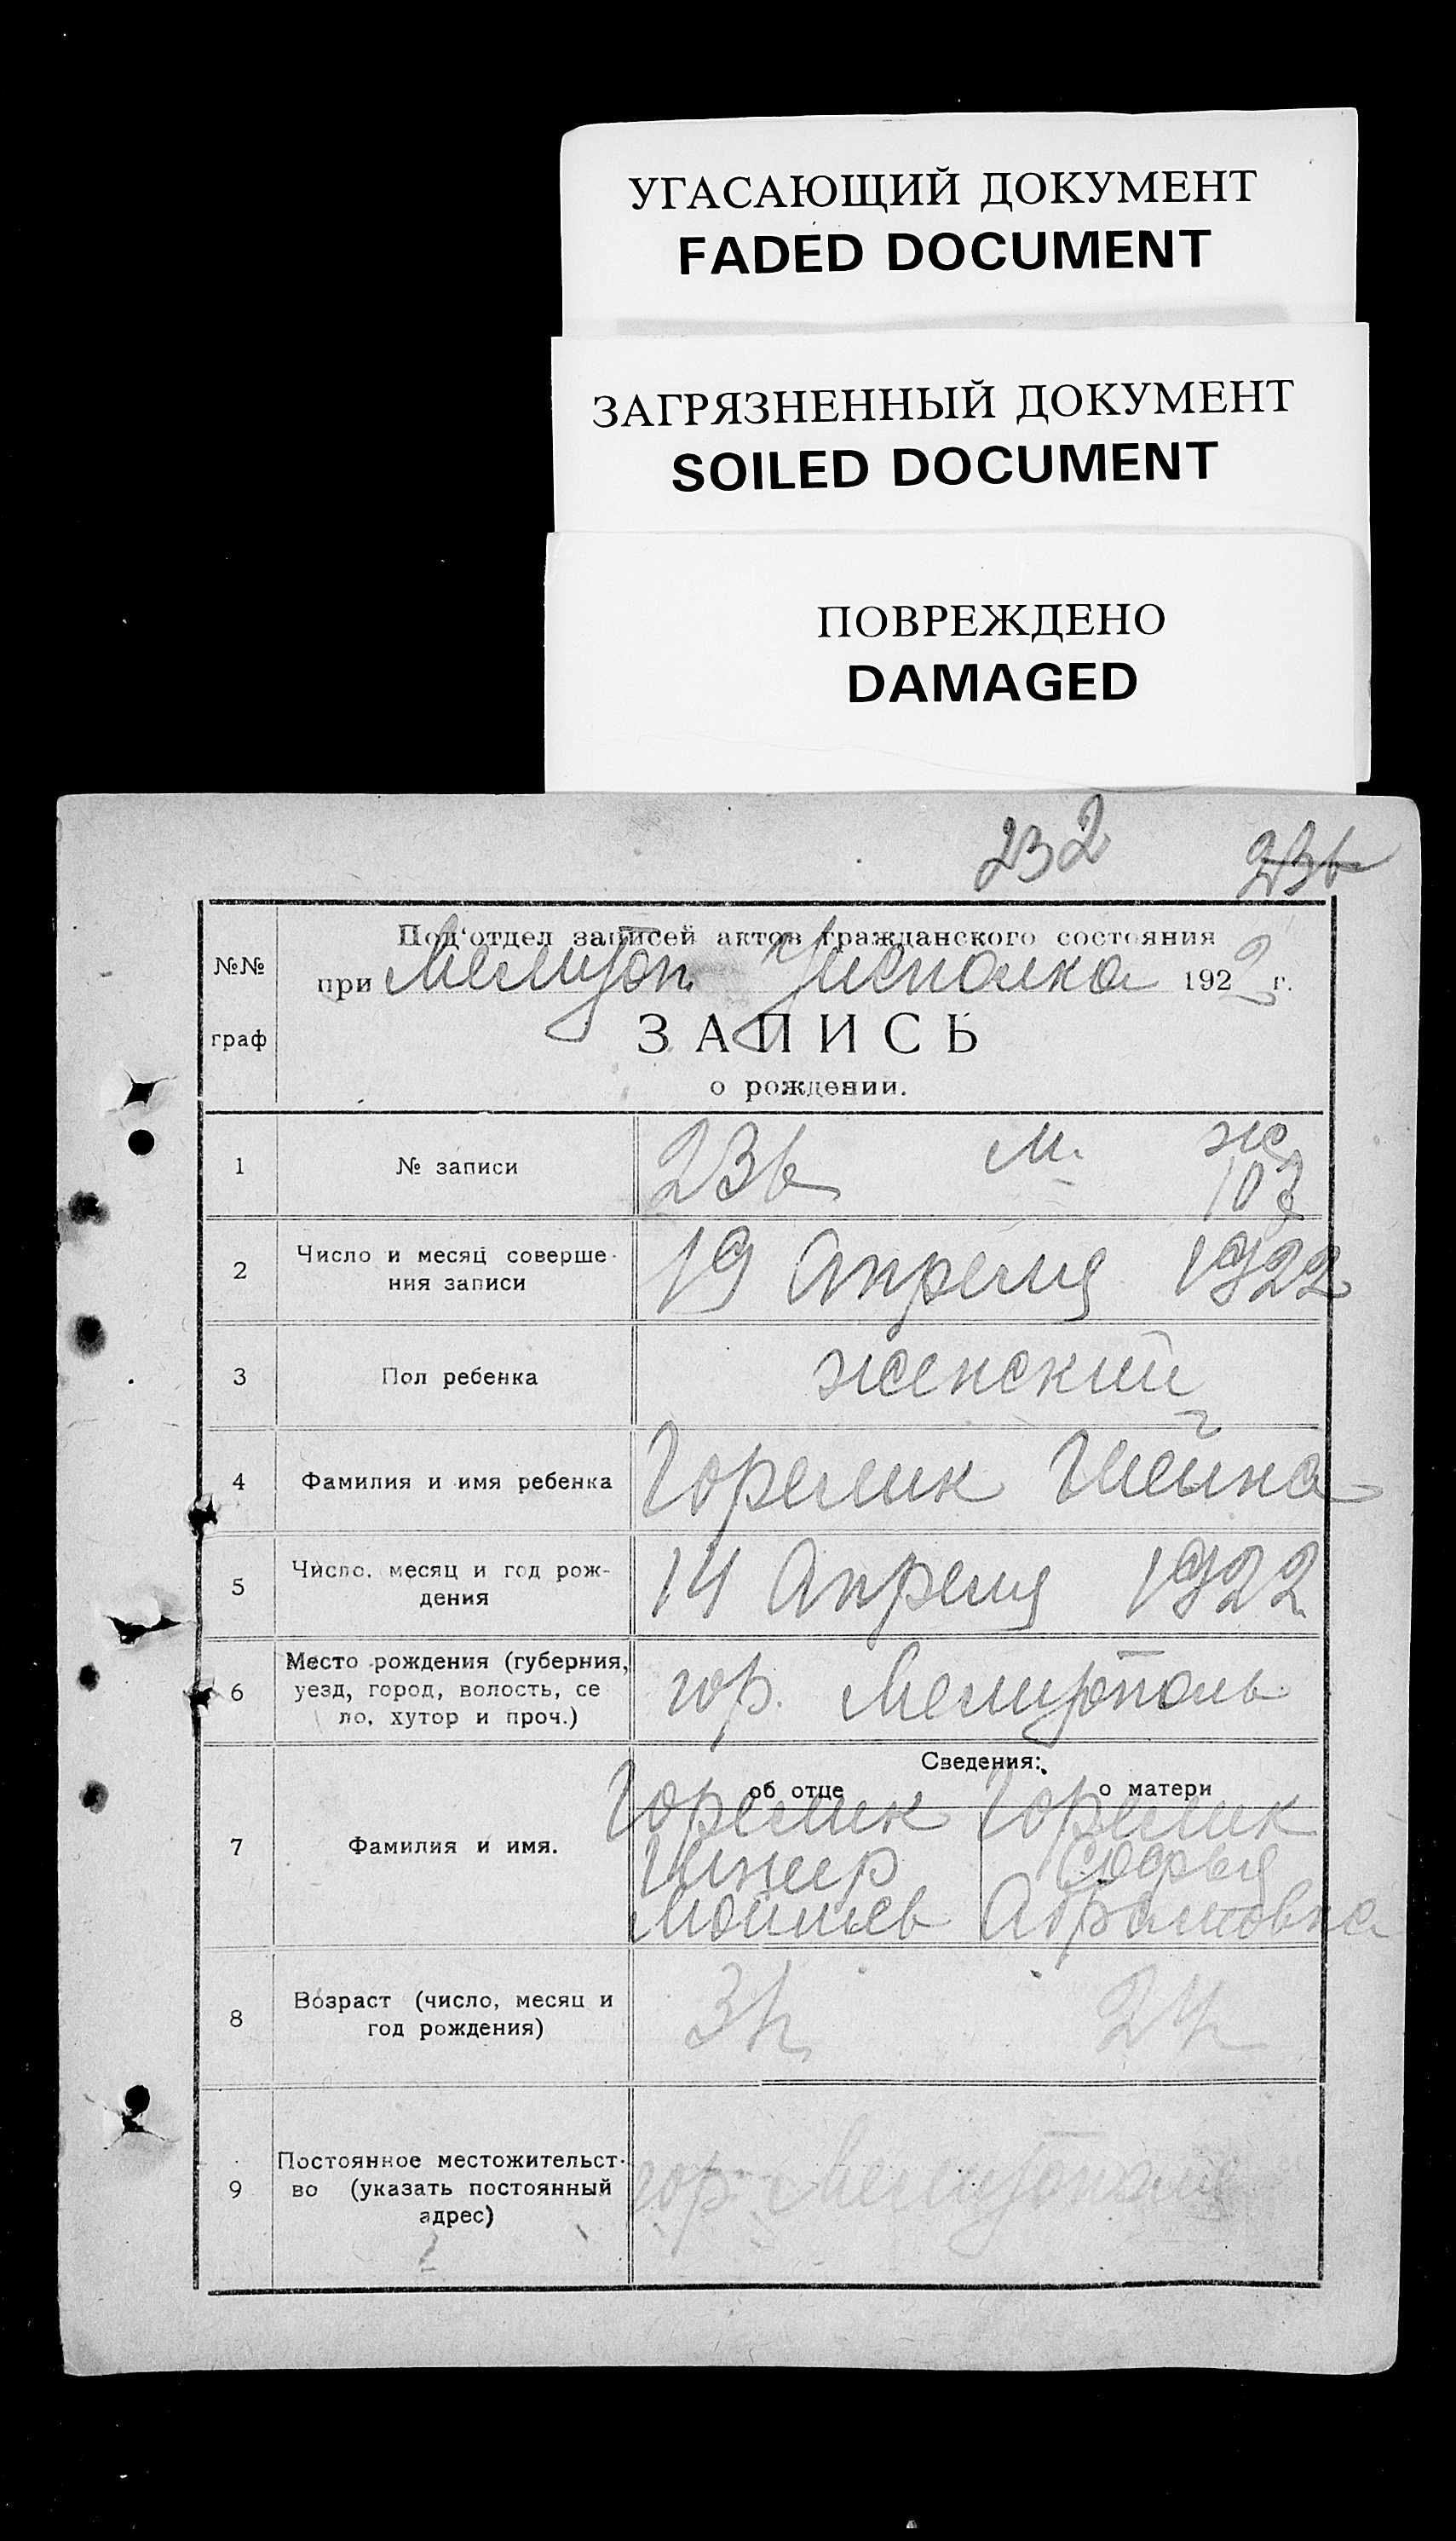 УГАСАЮЩИЙ ДОКУМЕНТ
FADED DOCUMENT
ЗАГРЯЗНЕННЫЙ ДОКУМЕНТ
SOILED DOCUMENT
ПОВРЕЖДЕНО
DAMAGED
232 236
№№ граф
Под'отдел записей актов гражданского состояния
при Мелитоп. Уисполка 1922 г.
ЗАПИСЬ
о рождении.
1 № записи 236 м. ж.
103
2 Число и месяц соверше-
ния записи 19 Апреля 1922
3 Пол ребенка женский
4 Фамилия и имя ребенка Горелик Шейна
5 Число, месяц и год рож-
дения 14 Апреля 1922
6 Место рождения (губерния,
уезд, город, волость, се
ло, хутор и проч.) гор. Мелитополь
Сведения:
об отце о матери
7 Фамилия и имя. Горелик Горелик
Софья
Абрамовна
8 Возраст (число, месяц и
год рождения)
9 Постоянное местожительст-
во (указать постоянный
адрес) гор. Мелитополь